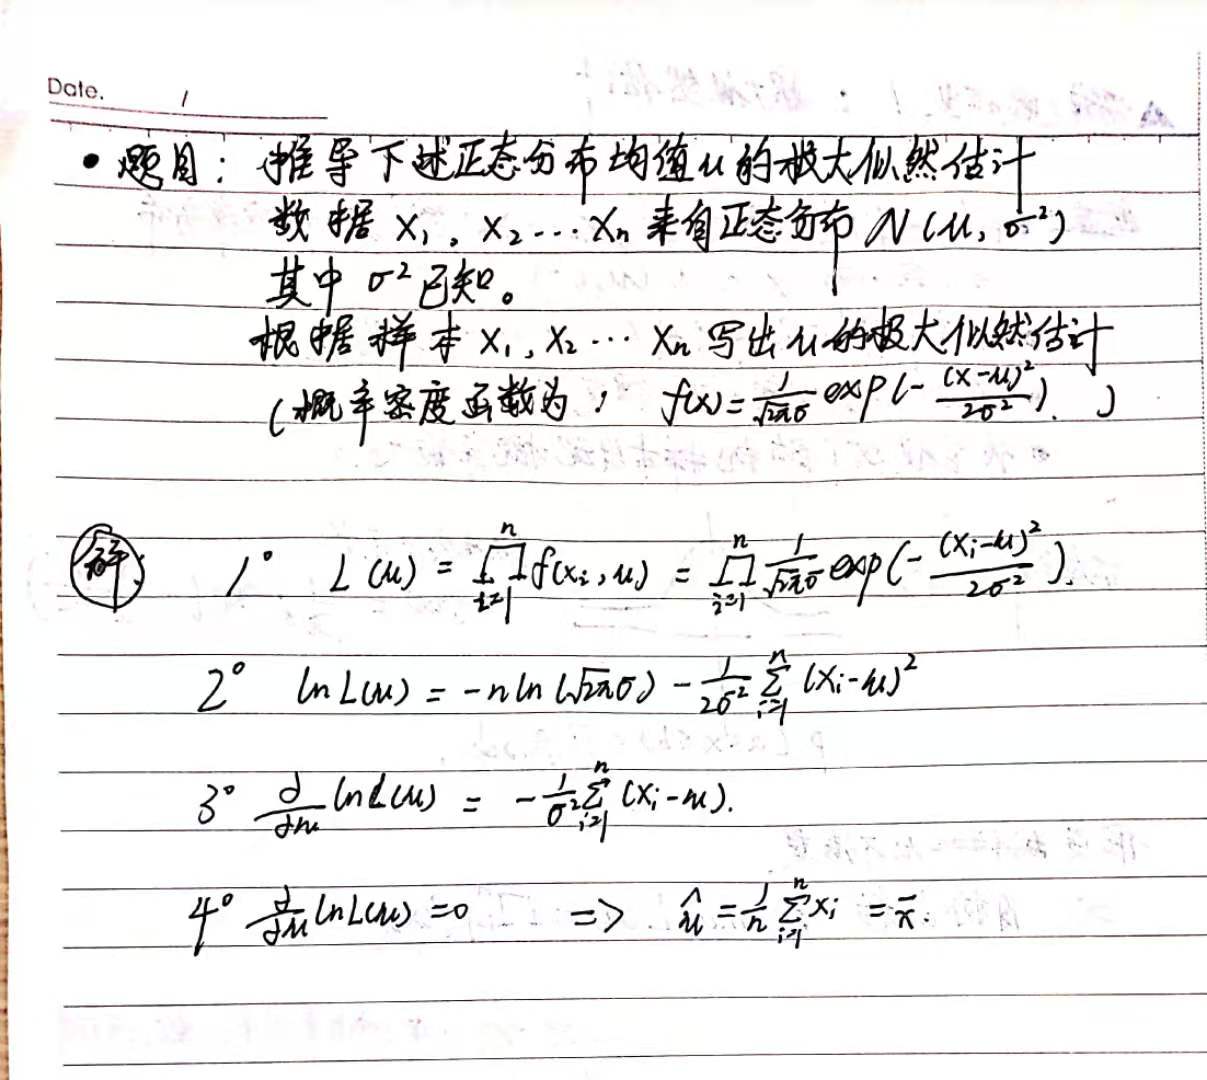 Date. /
• 题目：推导下述正态分布均值μ的极大似然估计
数据 X₁, X₂ ··· Xₙ 来自正态分布 N(μ, σ²)
其中 σ² 已知。
根据样本 X₁, X₂ ··· Xₙ 写出 μ 的极大似然估计
(概率密度函数为： f(x) = 1/(√2π σ) exp(- (x-μ)²/2σ²). )
解 1° L(μ) = ∏ᵢ₌₁ⁿ f(xᵢ, μ) = ∏ᵢ₌₁ⁿ 1/(√2π σ) exp(- (xᵢ-μ)²/2σ²).
2° ln L(μ) = -n ln(√2π σ) - 1/2σ² ∑ᵢ₌₁ⁿ (xᵢ-μ)²
3° ∂/∂μ ln L(μ) = - 1/σ² ∑ᵢ₌₁ⁿ (xᵢ-μ).
4° ∂/∂μ ln L(μ) = 0 => μ̂ = 1/n ∑ᵢ₌₁ⁿ xᵢ = x̄.